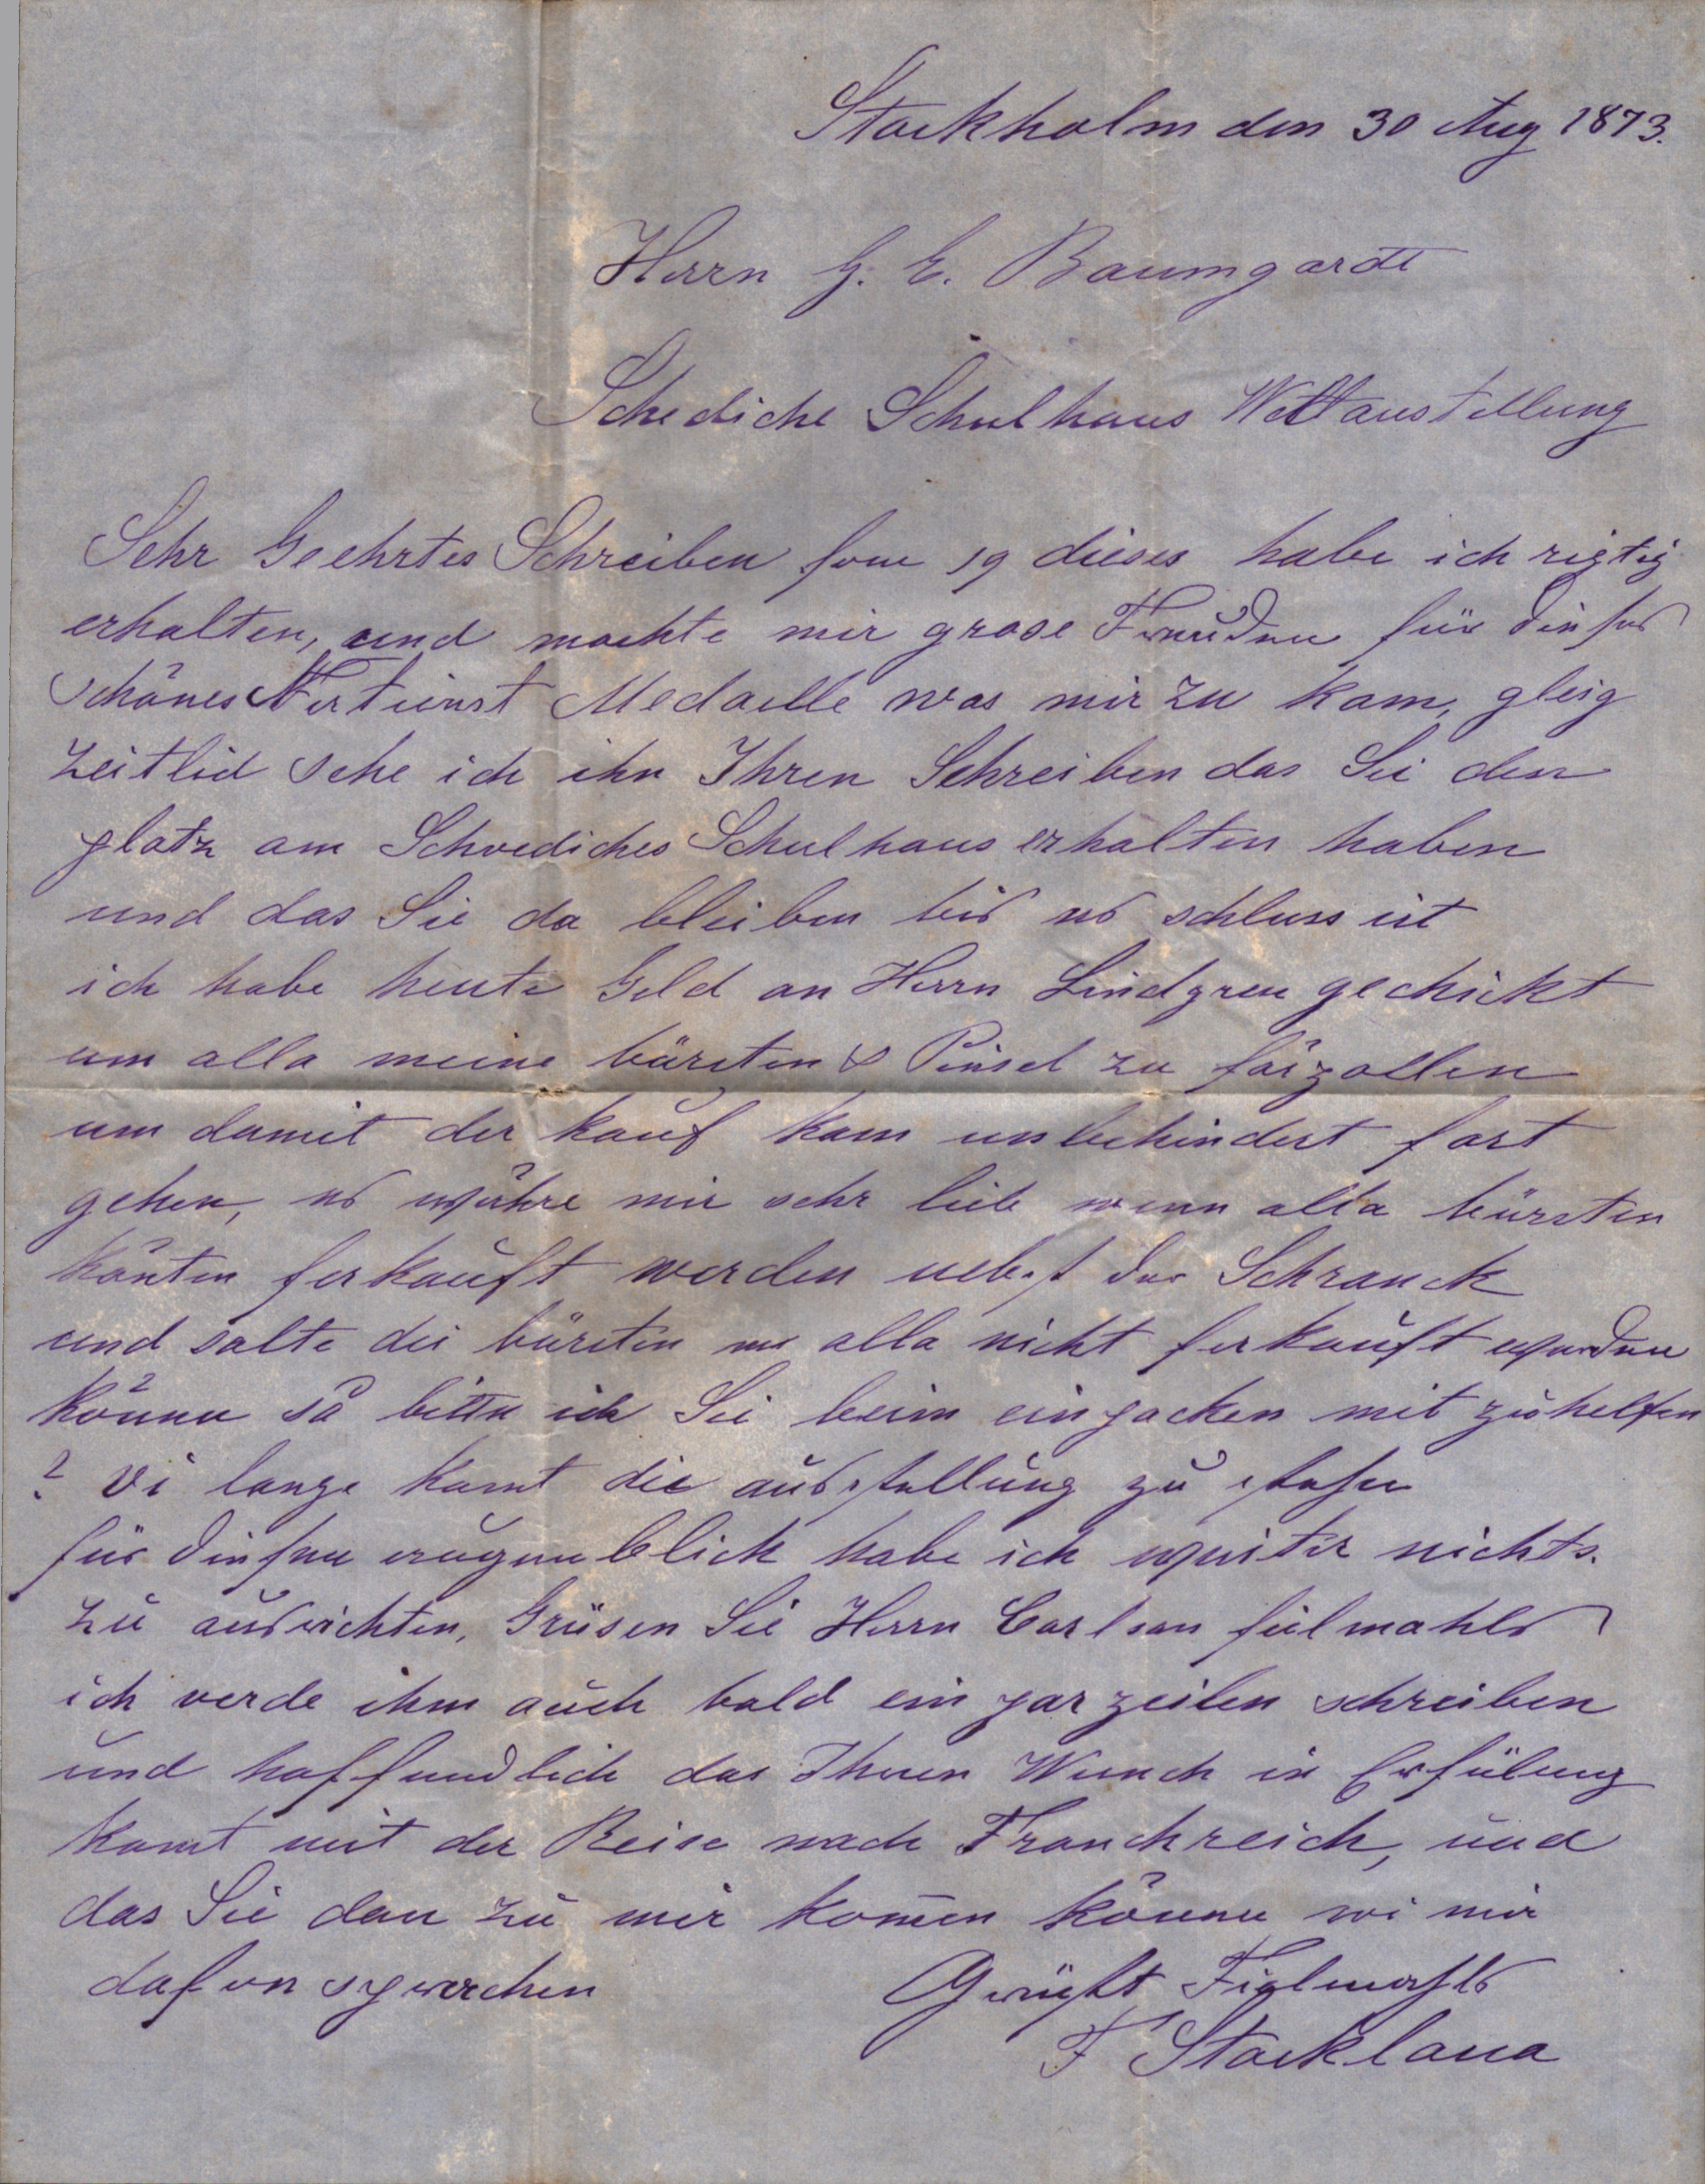 Stockholm den 30 Aug 1873.
Herrn G. E. Baumgardt
Schediche Schulhaus Weltaustellung
Sehr Geehrtes Schreiben fom 19 dieses habe ich rigtig
erhalten, und machte mir grose Freuden für dieses
schönes Fertienst Medaelle was mir zu kam, gleig
zeitlid sehe ich ihn Ihren Schreiben das Sie den
platz am Schvediches Schulhaus erhalten haben
und das Sie da bleiben bis es schluss ist
ich habe heute Geld an Herrn Lindgren gechickt
um alla meine bürsten & Pinsel zu förzollen
um damit der kauf kam unbehindert fort
gehen, es währe mir sehr lieb wenn alla bürsten
könten ferkauft werden nebst das Schranck
und solte die bürsten alla nicht ferkauft werden
können så bitte ich Sie beim einpacken mit zu helfen
? vi lange komt die ausstellung zu stehen
für diesen augenblick habe ich weiter nichts.
zu ausrichten, Grüsen Sie Herrn Carlson fielmahls
ich verde ihm auch bald ein par zeilen schreiben
und hoffendlich das Ihren Wunch in Erfülung
komt mit der Reise nach Franckreich, und
das Sie dan zu mir komen können wi mir
dafon sprechen
Grüst Fielmahls
F Stocklaua